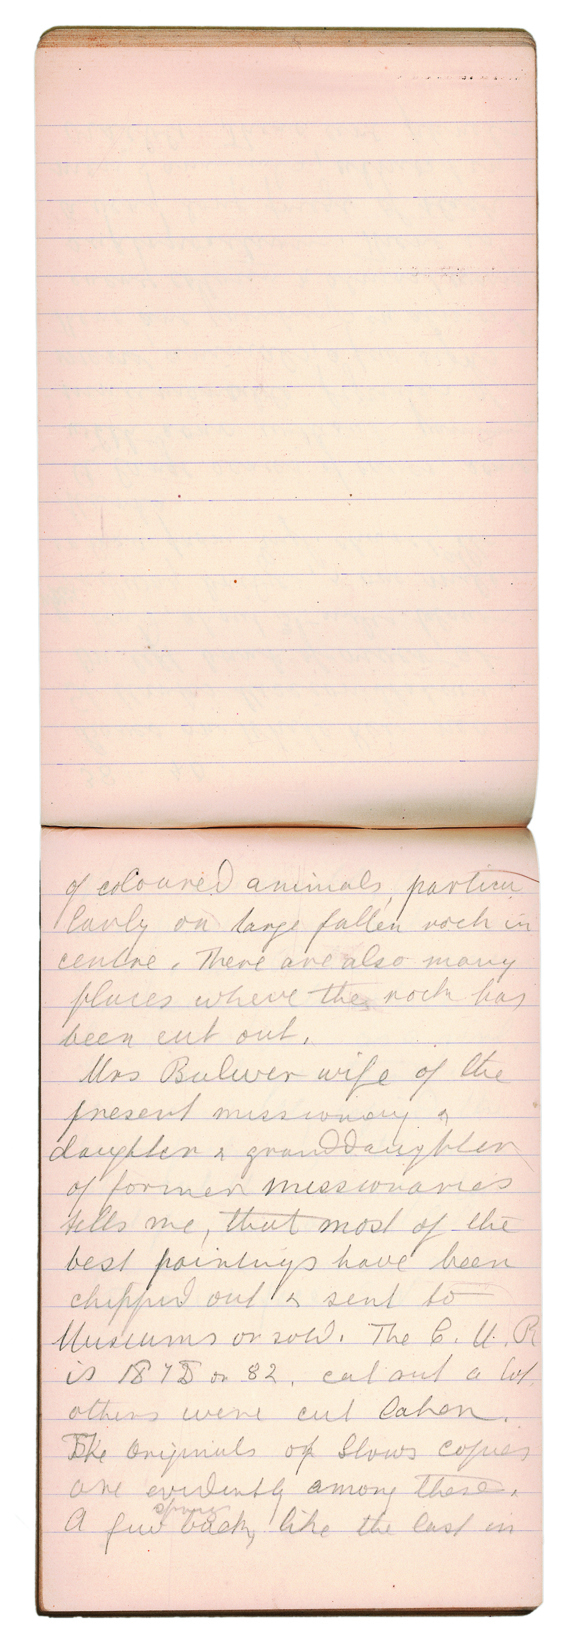 of coloured animals, particu
larly on large fallen rock in
centre. There are also many
places where the rock has
been cut out.
Mrs Bulwer wife of the
present missionary &
daughter & granddaughter
of former missionaries
tells me, that most of the
best paintings have been
chipped out & sent to
Museums or sold. The C. U. R
is 187 or 82. cut out a lot,
others were cut
The Originals of Stows copies
are evidently among these.
A few spring back, like the last in